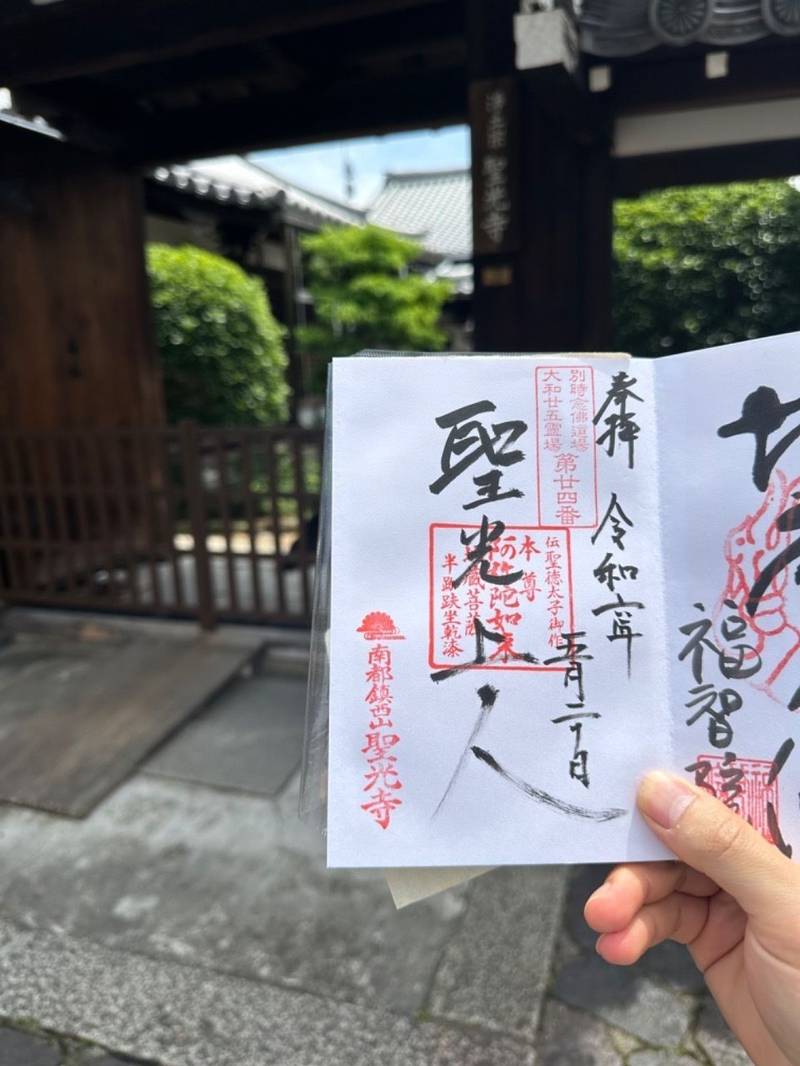 浄土宗 聖光寺
奉拝 令和寧
五月二十日
別時念佛道場
大和廿五霊場
第廿四番
聖光上人
伝聖徳太子御作
本尊
阿弥陀如来
地蔵菩薩
半跏趺坐乾漆
南都鎮西山
聖光寺
福智院